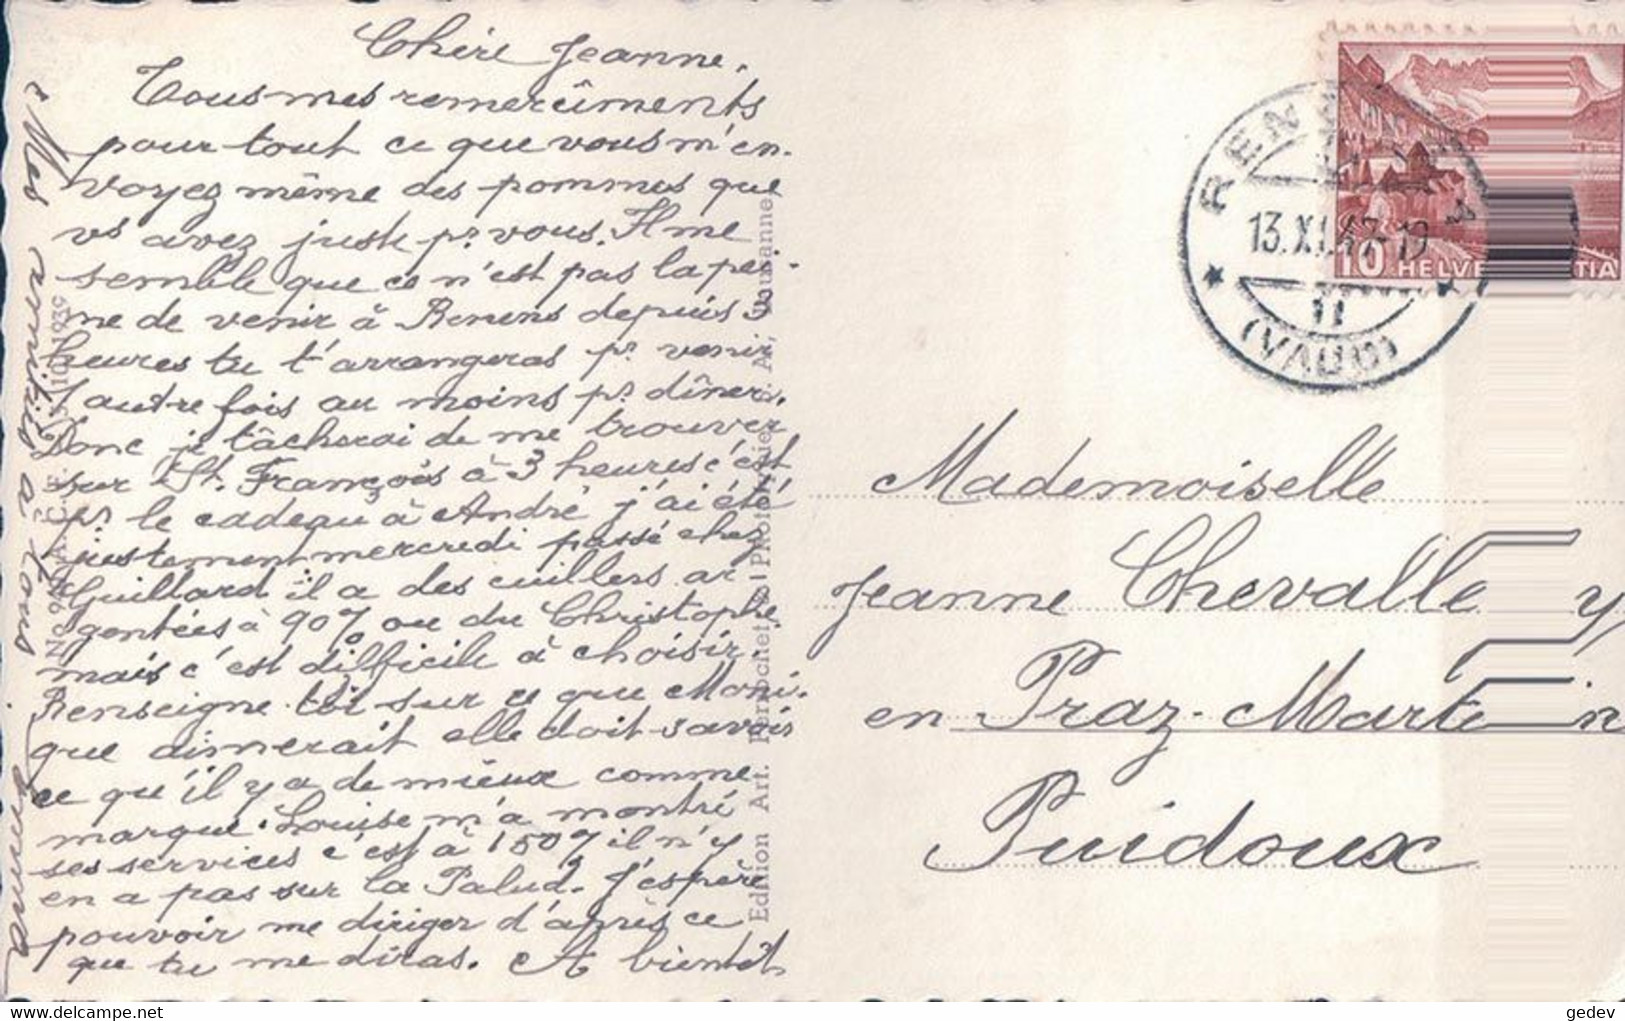 Chère Jeanne.
Tous mes remerciements
pour tout ce que vous m'en-
voyez même des pommes que
vs avez juste pr. vous. Il me
semble que ce n'est pas la pei-
ne de venir à Renens depuis 3
heures tu t'arrangeras pr. venir
1 autre fois au moins pr. dîner.
Donc je tâcherai de me trouver
sur St. François à 3 heures c'est
pr. le cadeau à André j'ai été
justement mercredi passé chez
Guillard il a des cuillers ar-
gentées à 90% ou du Christophe
mais c'est difficile à choisir.
Renseigne-toi sur ce que Moni-
que aimerait elle doit savoir
ce qu'il y a de mieux comme
marque. Louise m'a montré
ses services c'est à 150% il n'y
en a pas sur la Palud. J'espère
pouvoir me diriger d'après ce
que tu me diras. A bientôt
Mes amitiés a tous
Edition Art. Perrochet
1939
RENENS
13.XI.47-19
(VAUD)
10 HELVETIA
Mademoiselle
Jeanne Chevalley
en Praz-Martin
Puidoux
gedev